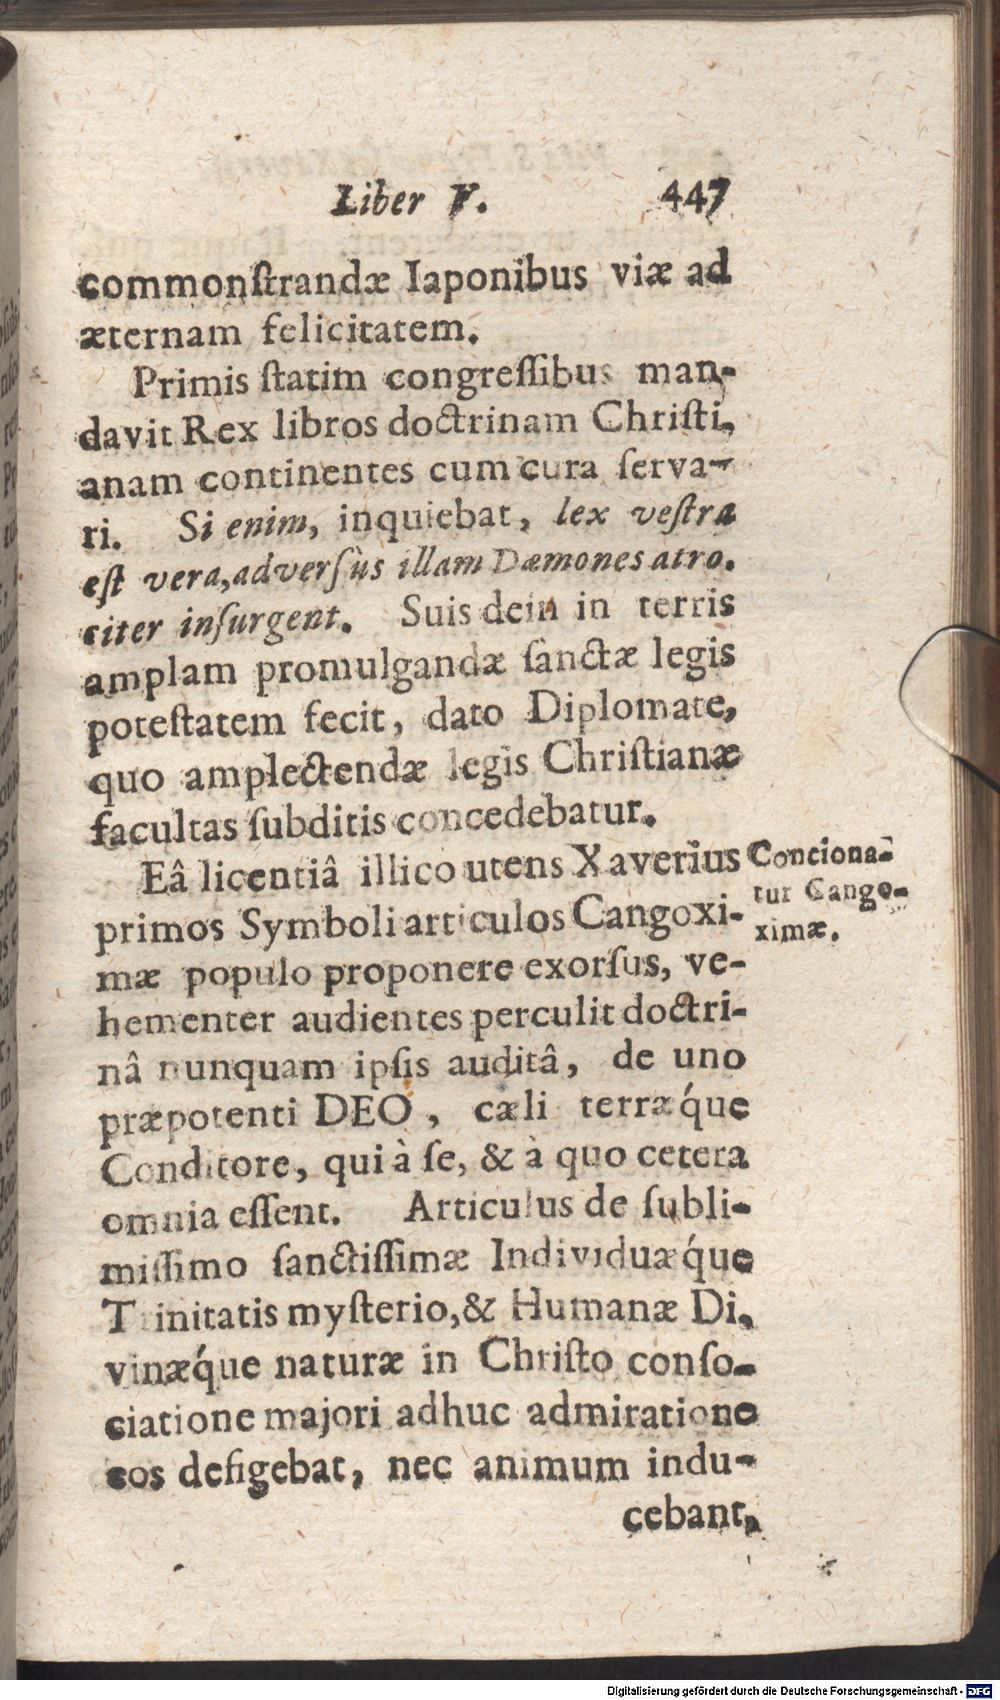 Liber V. 447
commonſtrandæ Iaponibus viæ ad
æternam felicitatem.
Primis ſtatim congreſſibus man-
davit Rex libros doctrinam Chriſti,
anam continentes cum cura ſerva-
ri. Si enim, inquiebat, lex veſtra
eſt vera, adverſùs illam Dæmones atro.
citer inſurgent. Suis dein in terris
amplam promulgandæ ſanctæ legis
poteſtatem fecit, dato Diplomate,
quo amplectendæ legis Chriſtianæ
facultas ſubditis concedebatur.
Eâ licentiâ illico utens Xaverius
primos Symboli articulos Cangoxi-
mæ populo proponere exorſus, ve-
hementer audientes perculit doctri-
nâ nunquam ipſis auditâ, de uno
præpotenti DEO, cæli terræq́ue
Conditore, qui à ſe, & à quo cetera
omnia eſſent. Articulus de ſubli-
miſſimo ſanctiſſimæ Individuæq́ue
Trinitatis myſterio, & Humanæ Di,
vinæq́ue naturæ in Chriſto conſo-
ciatione majori adhuc admiratione
eos defigebat, nec animum indu-
cebant,
Conciona-
tur Cango-
ximæ.
Digitalisierung gefördert durch die Deutsche Forschungsgemeinschaft - DFG